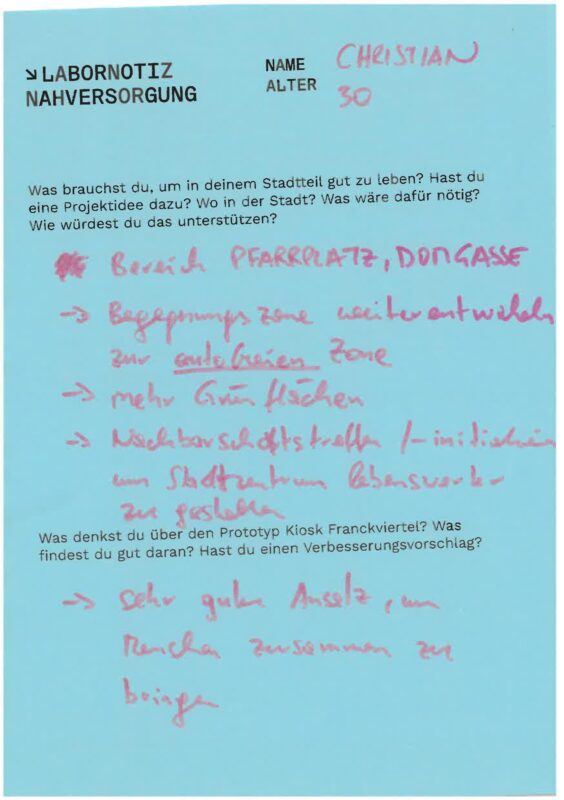 ↘ LABORNOTIZ
NAHVERSORGUNG
NAME CHRISTIAN
ALTER 30
Was brauchst du, um in deinem Stadtteil gut zu leben? Hast du
eine Projektidee dazu? Wo in der Stadt? Was wäre dafür nötig?
Wie würdest du das unterstützen?
Bereich PFARRPLATZ, DOMGASSE
→ Begegnungszone weiterentwickeln
zur autofreien Zone
→ mehr Grünflächen
→ Nachbarschaftstreffen /-initiativen
um Stadtzentrum lebenswerter
zu gestalten
Was denkst du über den Prototyp Kiosk Franckviertel? Was
findest du gut daran? Hast du einen Verbesserungsvorschlag?
→ sehr guter Ansatz, um
Menschen zusammen zu
bringen